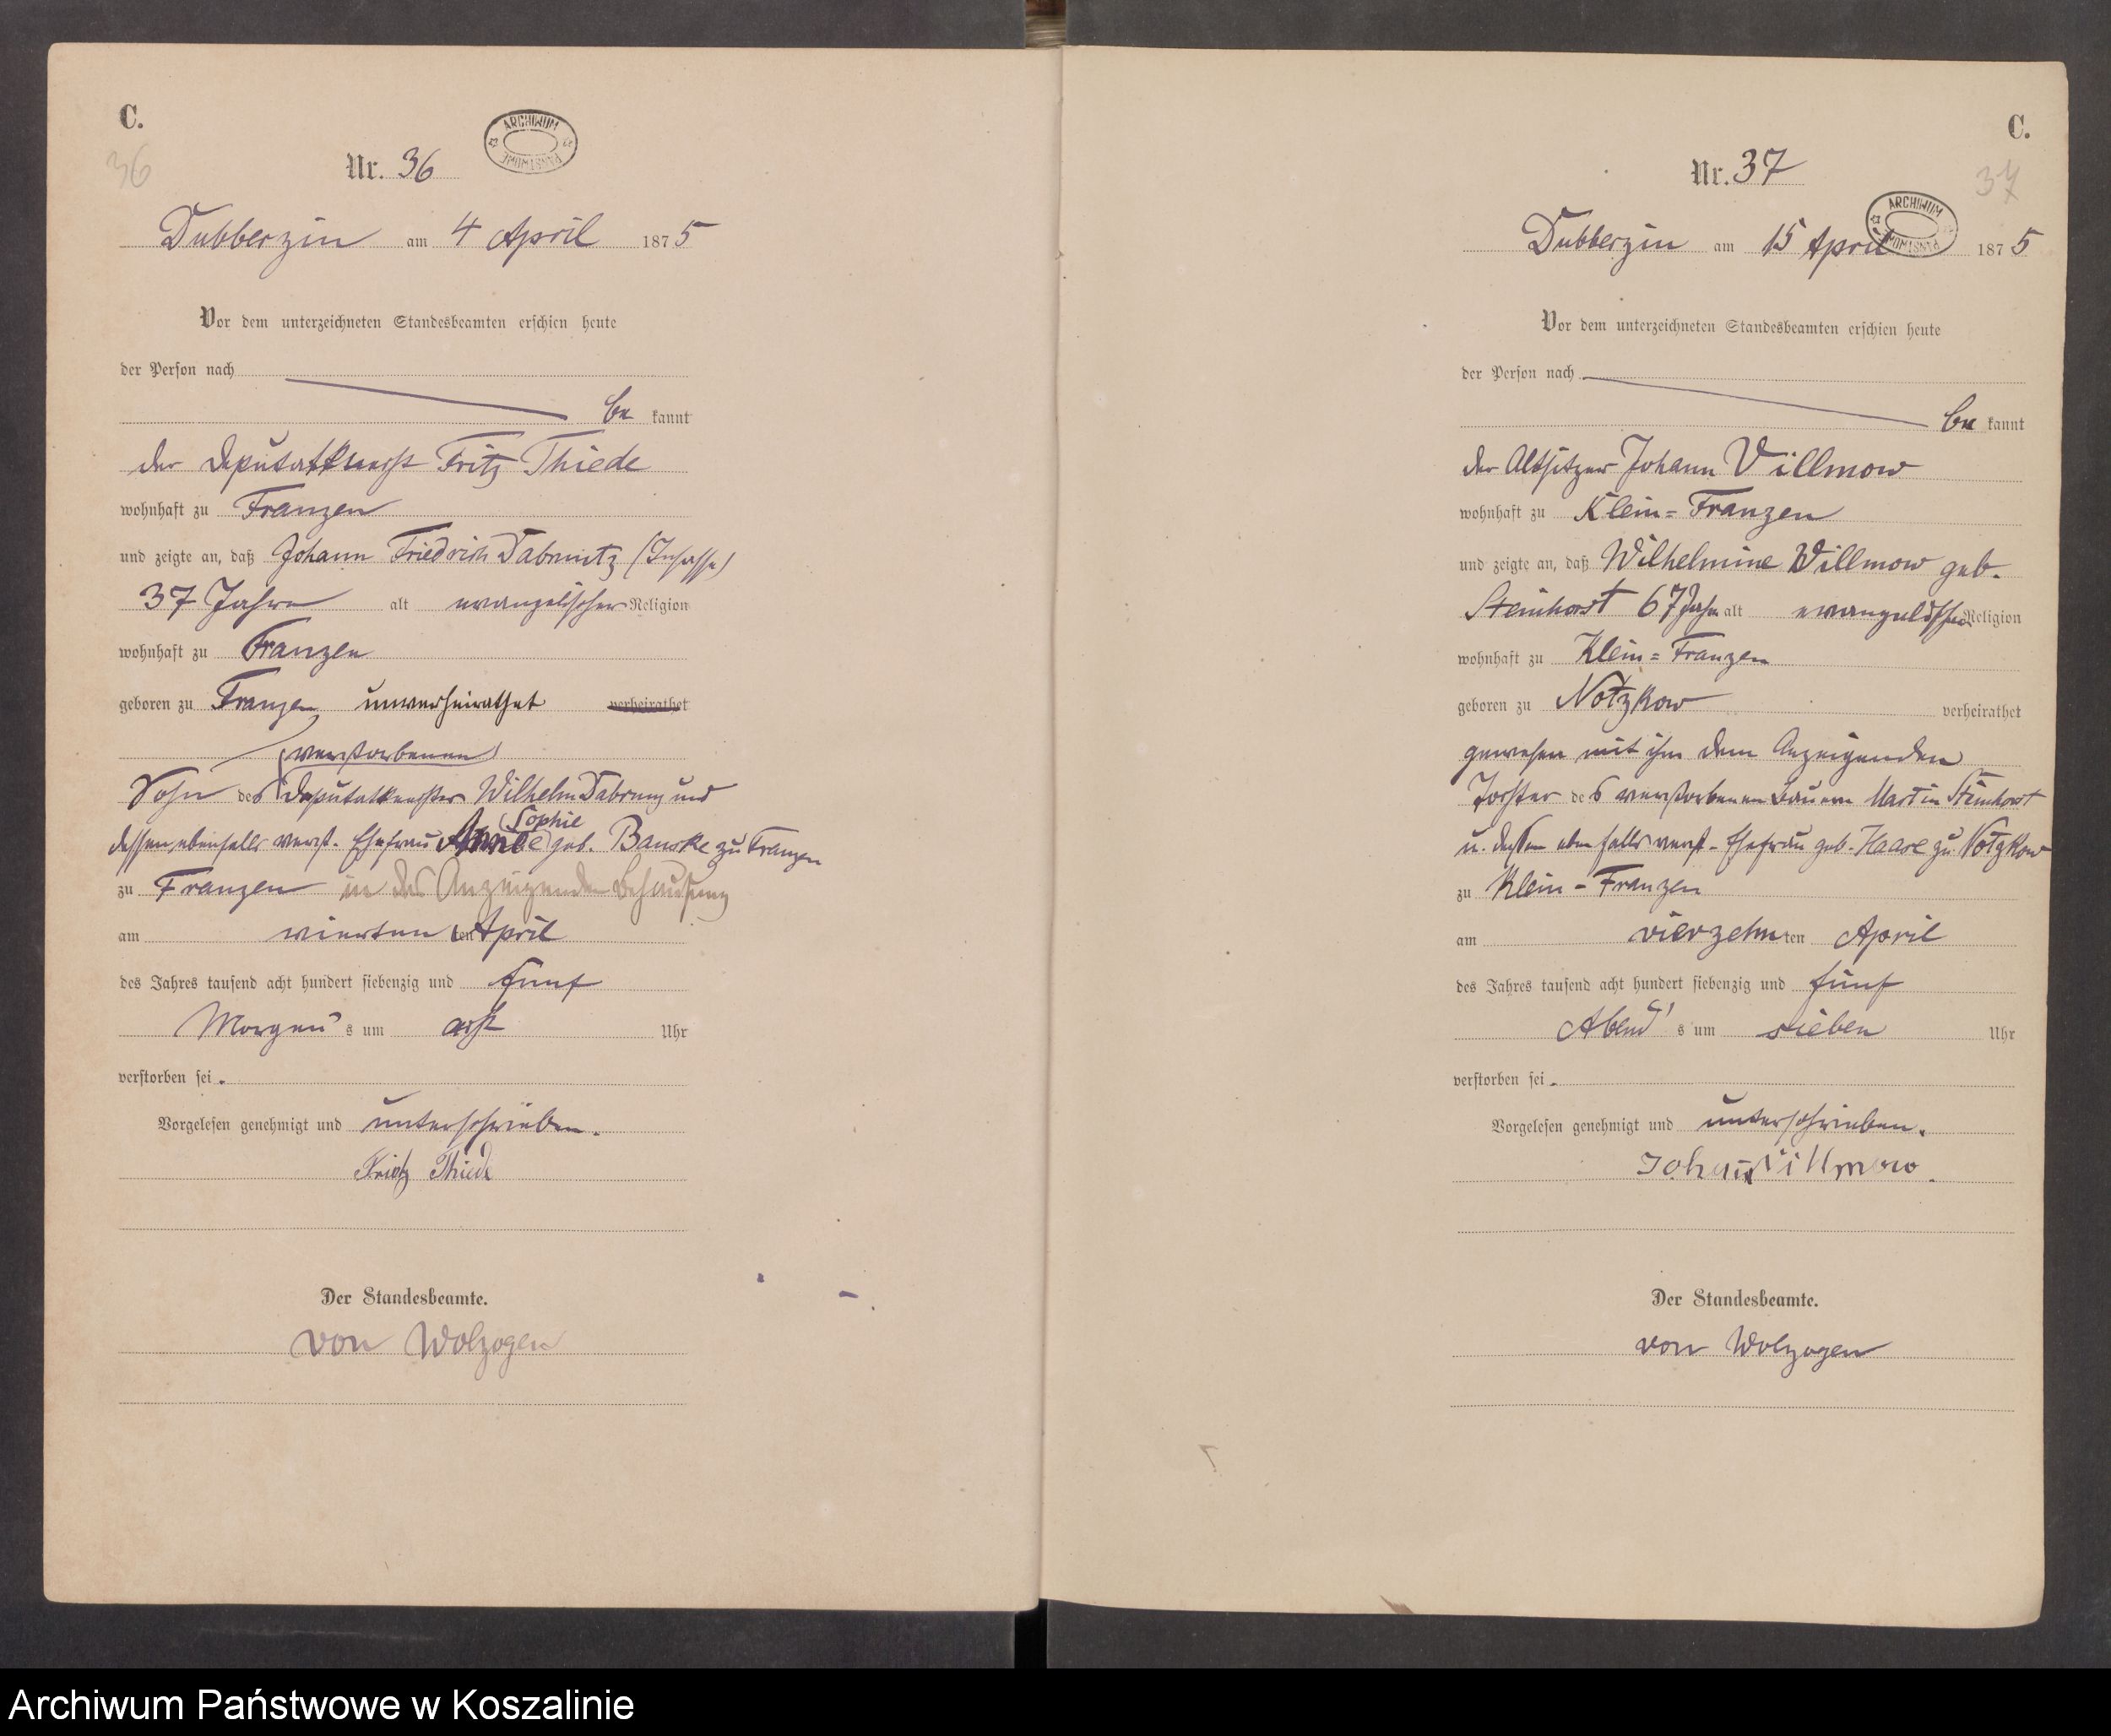 C.
36
Nr. 36
ARCHIWUM PAŃSTWOWE
Dubberzin am 4 April 1875
Vor dem unterzeichneten Standesbeamten erschien heute
der Person nach
be kannt
der Deputatknecht Fritz Thiede
wohnhaft zu Franzen
und zeigte an, daß Johann Friedrich (Insasse)
37 Jahre alt evangelischer Religion
wohnhaft zu Franzen
geboren zu Franzen unverheirathet verheirathet
(verstorbenen)
Sohn des Deputatknechts Wilhelm und
Sophie
dessen ebenfalls verst. Ehefrau geb. Banske zu Franzen
zu Franzen in des Anzeigenden Behausung
am vierten ten April
des Jahres tausend acht hundert siebenzig und fünf
Morgen's um acht Uhr
verstorben sei.
Vorgelesen genehmigt und unterschrieben.
Fritz Thiede
Der Standesbeamte.
von Wolzogen
C.
37
Nr. 37
ARCHIWUM PAŃSTWOWE
Dubberzin am 15 April 1875
Vor dem unterzeichneten Standesbeamten erschien heute
der Person nach
be kannt
der Altsitzer Johann Villmow
wohnhaft zu Klein=Franzen
und zeigte an, daß Wilhelmine Villmow geb.
Steinhorst 67 Jahr alt evangelischer Religion
wohnhaft zu Klein=Franzen
geboren zu Notzkow verheirathet
gewesen mit ihm dem Anzeigenden
Tochter des verstorbenen Bauern Martin Steinhorst
u. dessen ebenfalls verst. Ehefrau geb. Haase zu Notzkow
zu Klein-Franzen
am vierzehnten April
des Jahres tausend acht hundert siebenzig und fünf
Abend's um sieben Uhr
verstorben sei.
Vorgelesen genehmigt und unterschrieben.
Johan Villmow.
Der Standesbeamte.
von Wolzogen
Archiwum Państwowe w Koszalinie